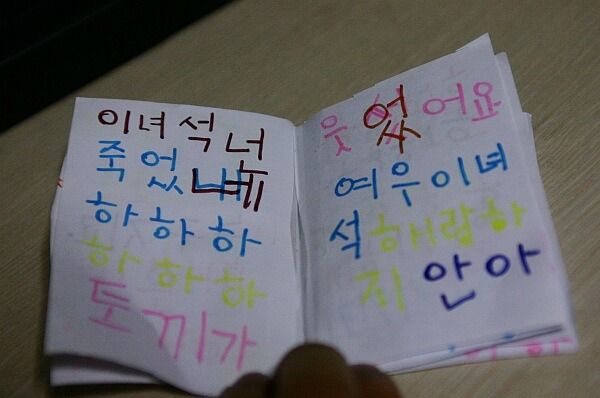 이녀석 넌
죽었네
하하하
하하하
토끼가
읏었어요
여우이녀
석해랍하
지안아